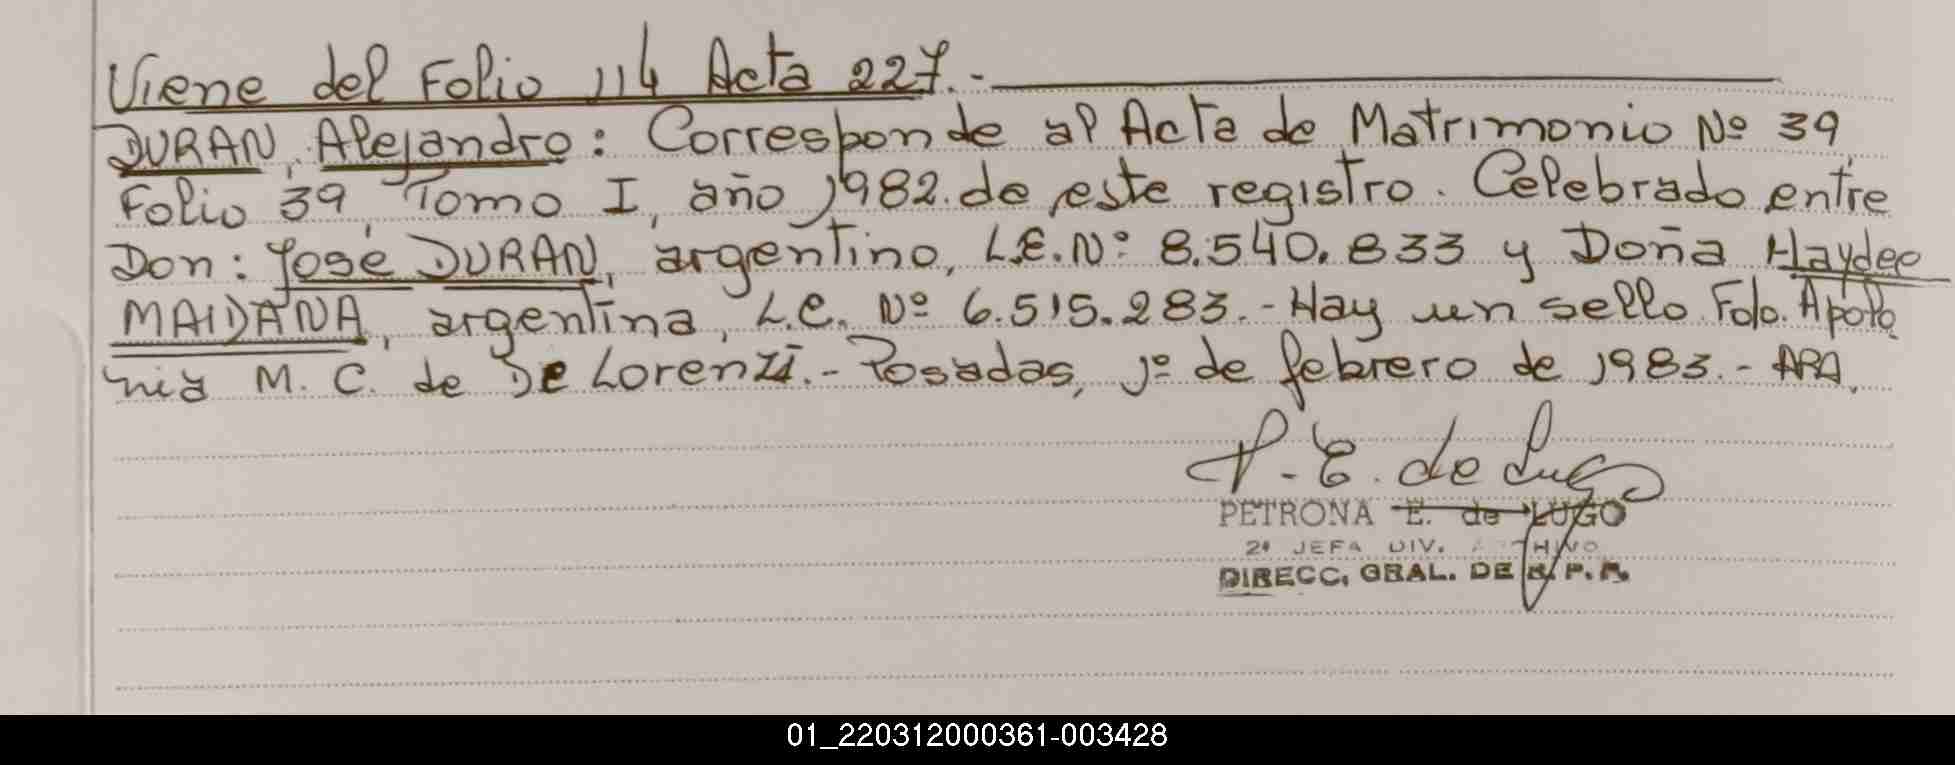 Viene del Folio 114 Acta 227.-
DURAN, Alejandro: Corresponde al Acta de Matrimonio Nº 39
Folio 39, Tomo I, año 1982. de este registro. Celebrado entre
Don: José DURAN, argentino, L.E. Nº 8.540.833 y Doña Haydee
MAIDANA, argentina, L.C. Nº 6.515.283.- Hay un sello. Fdo. Apolo
nia M. C. de De Lorenzi.- Posadas, 1º de febrero de 1983.- ARA.
P. E. de Lugo
PETRONA E. de LUGO
2ª JEFA DIV. ARCHIVO
DIRECC. GRAL. DE R. P. P.
01_220312000361-003428